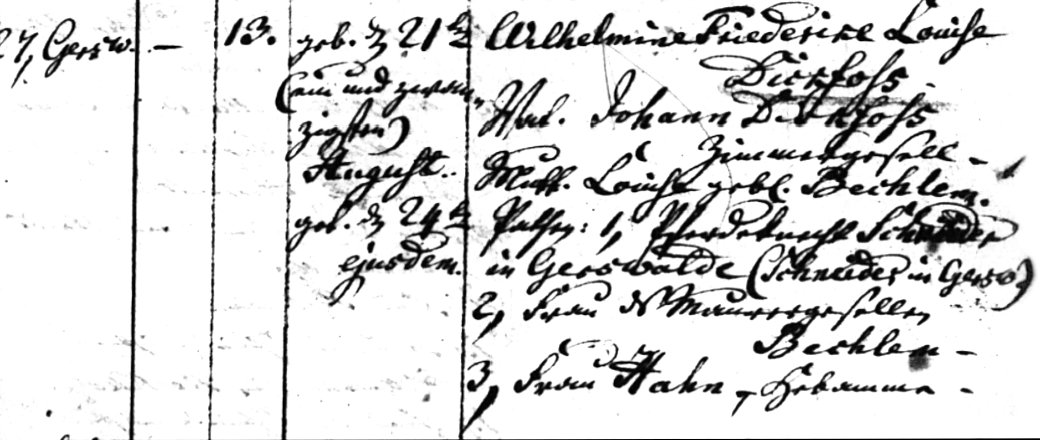 27, Gersw. — 13.
geb. d 21te
(ein und zwan-
zigsten)
August.
get. d 24te
ejusdem.
Wilhelmine Friederike Louise
Dickhoss.
Vat. Johann Dickhoss
Zimmergesell -
Mutt. Louise gebl. Bechlem.
Pathen: 1, Pferdeknecht Schneider
in Gerswalde (Schneider in Gersw)
2, Frau ds Maurergesellen
Bechlem -
3, Frau Hahn, Hebamme -